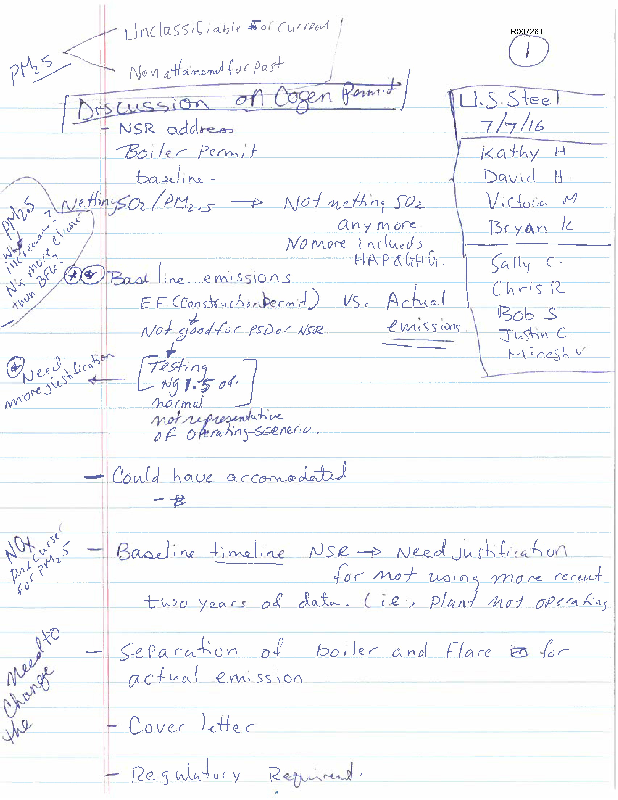 PM2.5
Unclassifiable for current
Nonattainment for past
1
Discussion on Cogen Permit
U.S. Steel
7/7/16
Kathy H
David H
Victoria M
Bryan K
Sally C.
Chris R
Bob S
Justin C
- NSR address
Boiler Permit
baseline -
Netting SO2/PM2.5 → Not netting SO2
anymore
No more includes
HAP & GHG.
PM2.5
NG more cleaner
than BFG?
Baseline emissions
EF (Construction Permit) vs. Actual
emissions
Not good for PSD or NSR
Need
more justification
Testing
NG 1.5 of
normal
not representative
of operating scenerio.
- Could have accomodated
NOx
precursor
for PM2.5
- Baseline timeline NSR → Need justification
for not using more recent
two years of data. (i.e., plant not operating
Need to
Change
the
- Separation of boiler and flare for
actual emission
- Cover letter
- Regulatory Requirement.